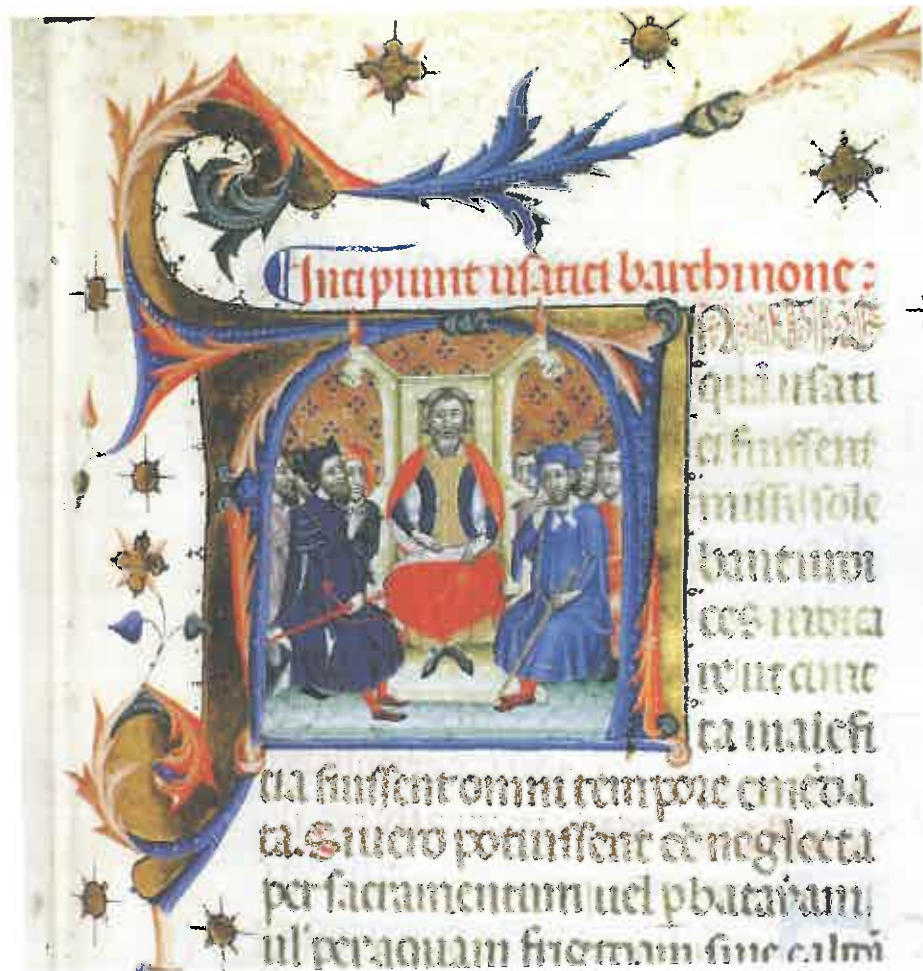 Incipiunt usatici barchinone:
quā usati
ci fuissent
missi sole
bant iudi
ces iudica
re ut cunc
ta malefi
cia fuissent omni tempore emēda
ta. Si uero potuissent eē neglecta
per sacramentum uel p batayam
ul' per aquam frigidam siue calidā